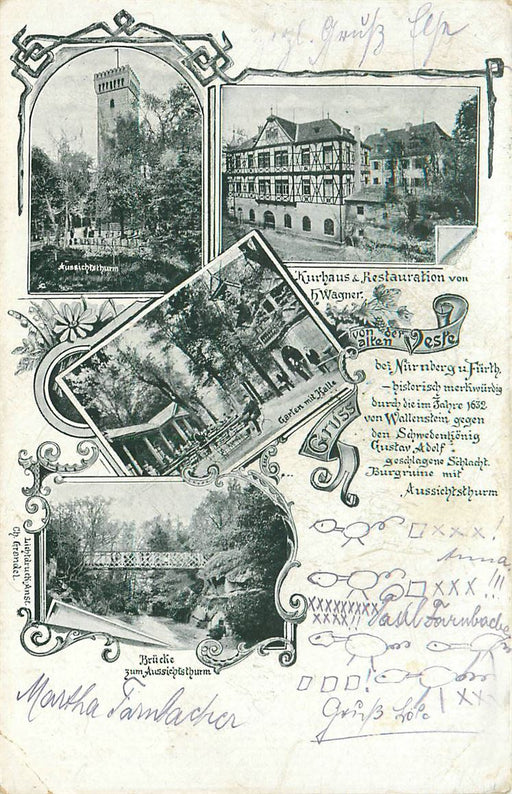 Gruß Else
Aussichtsthurm
Kurhaus & Restauration von
H. Wagner.
Gruss
von der
alten Veste
bei Nürnberg u. Fürth,
– historisch merkwürdig
durch die im Jahre 1632
von Wallenstein gegen
den Schwedenkönig
Gustav Adolf
geschlagene Schlacht.
Burgruine mit
Aussichtsthurm
Garten mit Halle
Lichtdruck Anst.
Brücke
zum Aussichtsthurm
xxxx!
Anna
xxx!!!
xxxxxxxxx
xxxx!! Farnbacher
Martha Farnbacher
Gruß